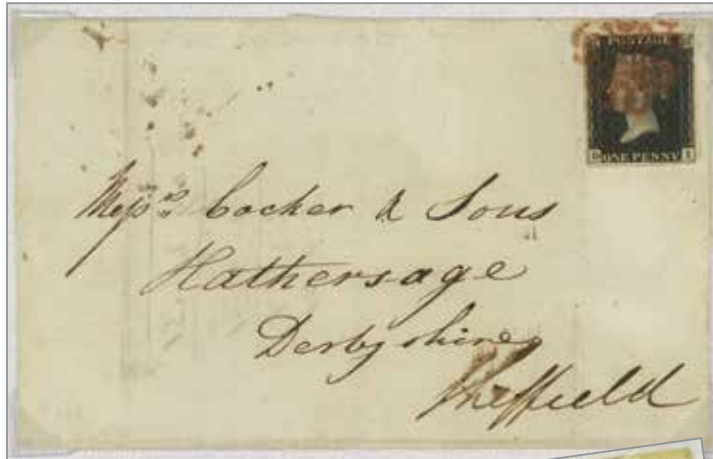 POSTAGE
ONE PENNY
Mess^rs Cocker & Sons
Hathersage
Derbyshire
Sheffield